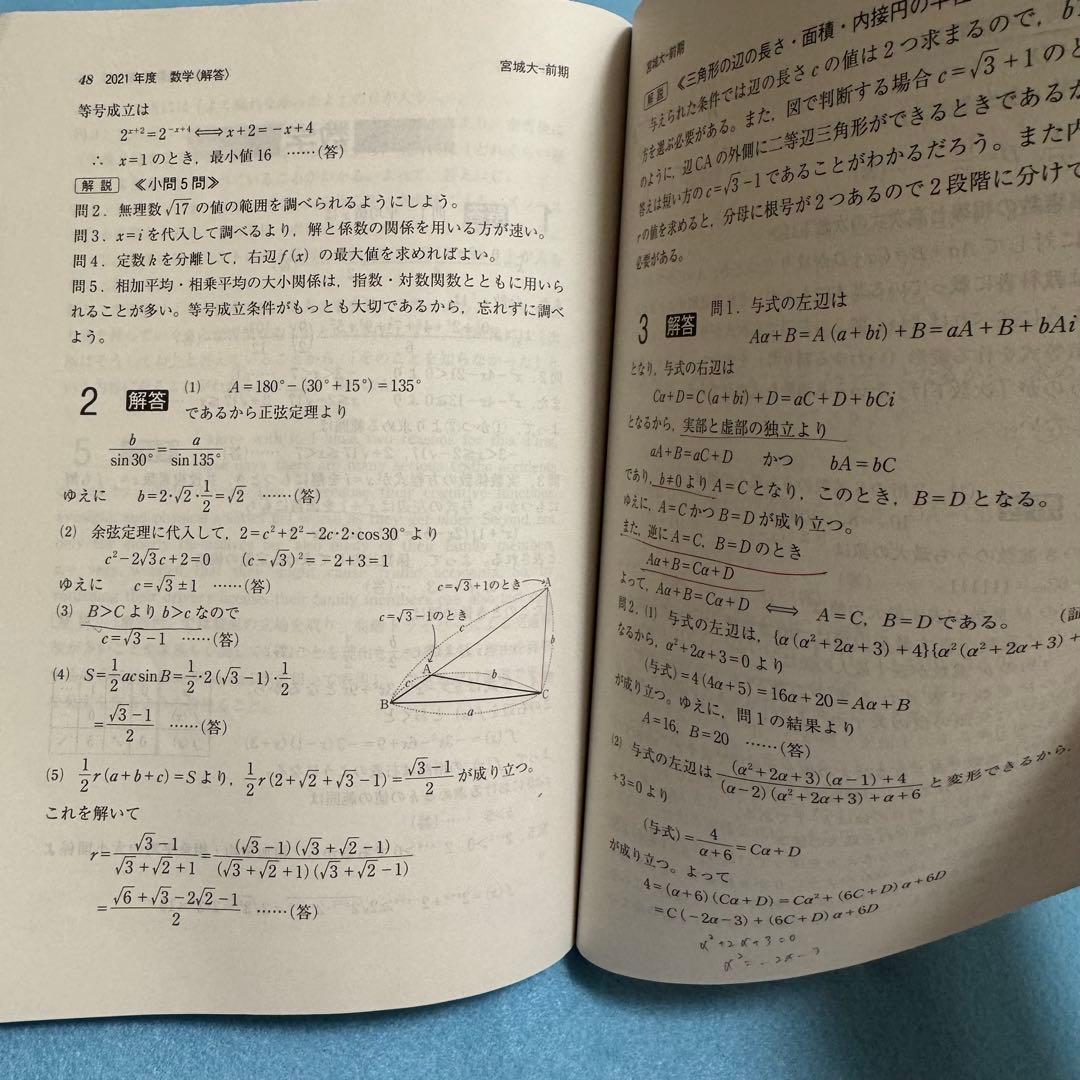 48 2021年度 数学〈解答〉
宮城大-前期
等号成立は
2^{x+2}=2^{-x+4}⟺x+2=-x+4
∴ x=1のとき，最小値16 ……(答)
解説 ≪小問5問≫
問2．無理数√17の値の範囲を調べられるようにしよう。
問3．x=iを代入して調べるより，解と係数の関係を用いる方が速い。
問4．定数kを分離して，右辺f(x)の最大値を求めればよい。
問5．相加平均・相乗平均の大小関係は，指数・対数関数とともに用いら
れることが多い。等号成立条件がもっとも大切であるから，忘れずに調べ
よう。
2 解答 (1) A=180°-(30°+15°)=135°
であるから正弦定理より
b/sin30°=a/sin135°
ゆえに b=2・√2・1/2=√2 ……(答)
(2) 余弦定理に代入して，2=c²+2²-2c・2・cos30°より
c²-2√3c+2=0 (c-√3)²=-2+3=1
ゆえに c=√3±1 ……(答)
(3) B>Cよりb>cなので
c=√3-1 ……(答)
(4) S=1/2acsinB=1/2・2(√3-1)・1/2
=(√3-1)/2 ……(答)
c=√3+1のとき
c=√3-1のとき
A
c
b
A
b
c
B
C
a
(5) 1/2r(a+b+c)=Sより，1/2r(2+√2+√3-1)=(√3-1)/2が成り立つ。
これを解いて
r=(√3-1)/(√3+√2+1)=(√3-1)(√3+√2-1)/(√3+√2+1)(√3+√2-1)
=(√6+√3-2√2-1)/2 ……(答)
宮城大-前期
解説 ≪三角形の辺の長さ・面積・内接円の半径
与えられた条件では辺の長さcの値は2つ求まるので，b
方を選ぶ必要がある。また，図で判断する場合c=√3+1のと
のように，辺CAの外側に二等辺三角形ができるときであるか
答えは短い方のc=√3-1であることがわかるだろう。また内
rの値を求めると，分母に根号が2つあるので2段階に分けて
必要がある。
3 解答 問1．与式の左辺は
Aα+B=A(a+bi)+B=aA+B+bAi
となり，与式の右辺は
Cα+D=C(a+bi)+D=aC+D+bCi
となるから，実部と虚部の独立より
aA+B=aC+D かつ bA=bC
であり，b≠0よりA=Cとなり，このとき，B=Dとなる。
ゆえに，A=CかつB=Dが成り立つ。
また，逆にA=C，B=Dのとき
Aα+B=Cα+D
よって，Aα+B=Cα+D ⟺ A=C，B=Dである。 (証
問2．(1) 与式の左辺は，{α(α²+2α+3)+4}{α²(α²+2α+3)+
なるから，α²+2α+3=0より
(与式)=4(4α+5)=16α+20=Aα+B
が成り立つ。ゆえに，問1の結果より
A=16，B=20 ……(答)
(2) 与式の左辺は((α²+2α+3)(α-1)+4)/((α-2)(α²+2α+3)+α+6)と変形できるから，
+3=0より
(与式)=4/(α+6)=Cα+D
が成り立つ。よって
4=(α+6)(Cα+D)=Cα²+(6C+D)α+6D
=C(-2α-3)+(6C+D)α+6D
α²+2α+3=0
α²=-2α-3